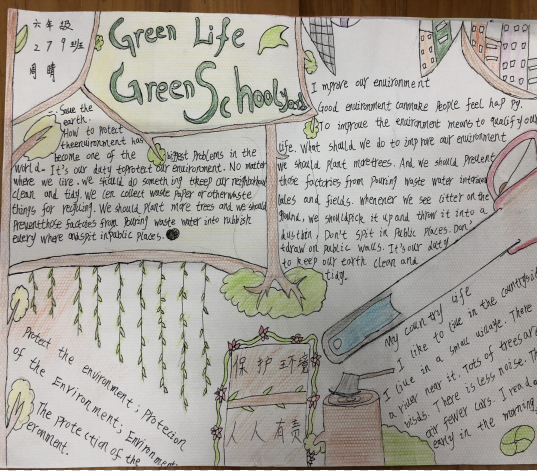 六年级
279班
周晴
Green Life
Green School
Save the
earth.
How to protect
theenvironment has
become one of the
biggest problems in the
world. It's our duty toprotect our environment. No matter
where we live. we should do something tokeep our neighborhood
clean and tidy. We can collect waste paper or otherwaste
things for recycling. We should plant more trees and we should
Preventthose factories from pouring waste water into rubbish
every where andspit inpublic places.
Improve our environment
Good environment canmake people feel happy.
To improve the environment means to qualify our
life. What should we do to improve our environment
We should plant moretrees. And we should present
those factories from pouring waste water into
lakes and fields. whenever we see litter on the
ground, we shouldpick it up and throw it into a
dustbin. Don't spit in public places. Don'
tdraw on public walls. It's our duty
to keep our earth clean and
tidy.
My country life
I like to live in the countryside
I live in a small village. There
a river near it. Lots of trees are
birds. There is less noise. Th
are fewer cars. I read
early in the morning
Protect the environment; Protecion
of the Environment; Environment
The protection of the
eronment.
保护环境
人人有责